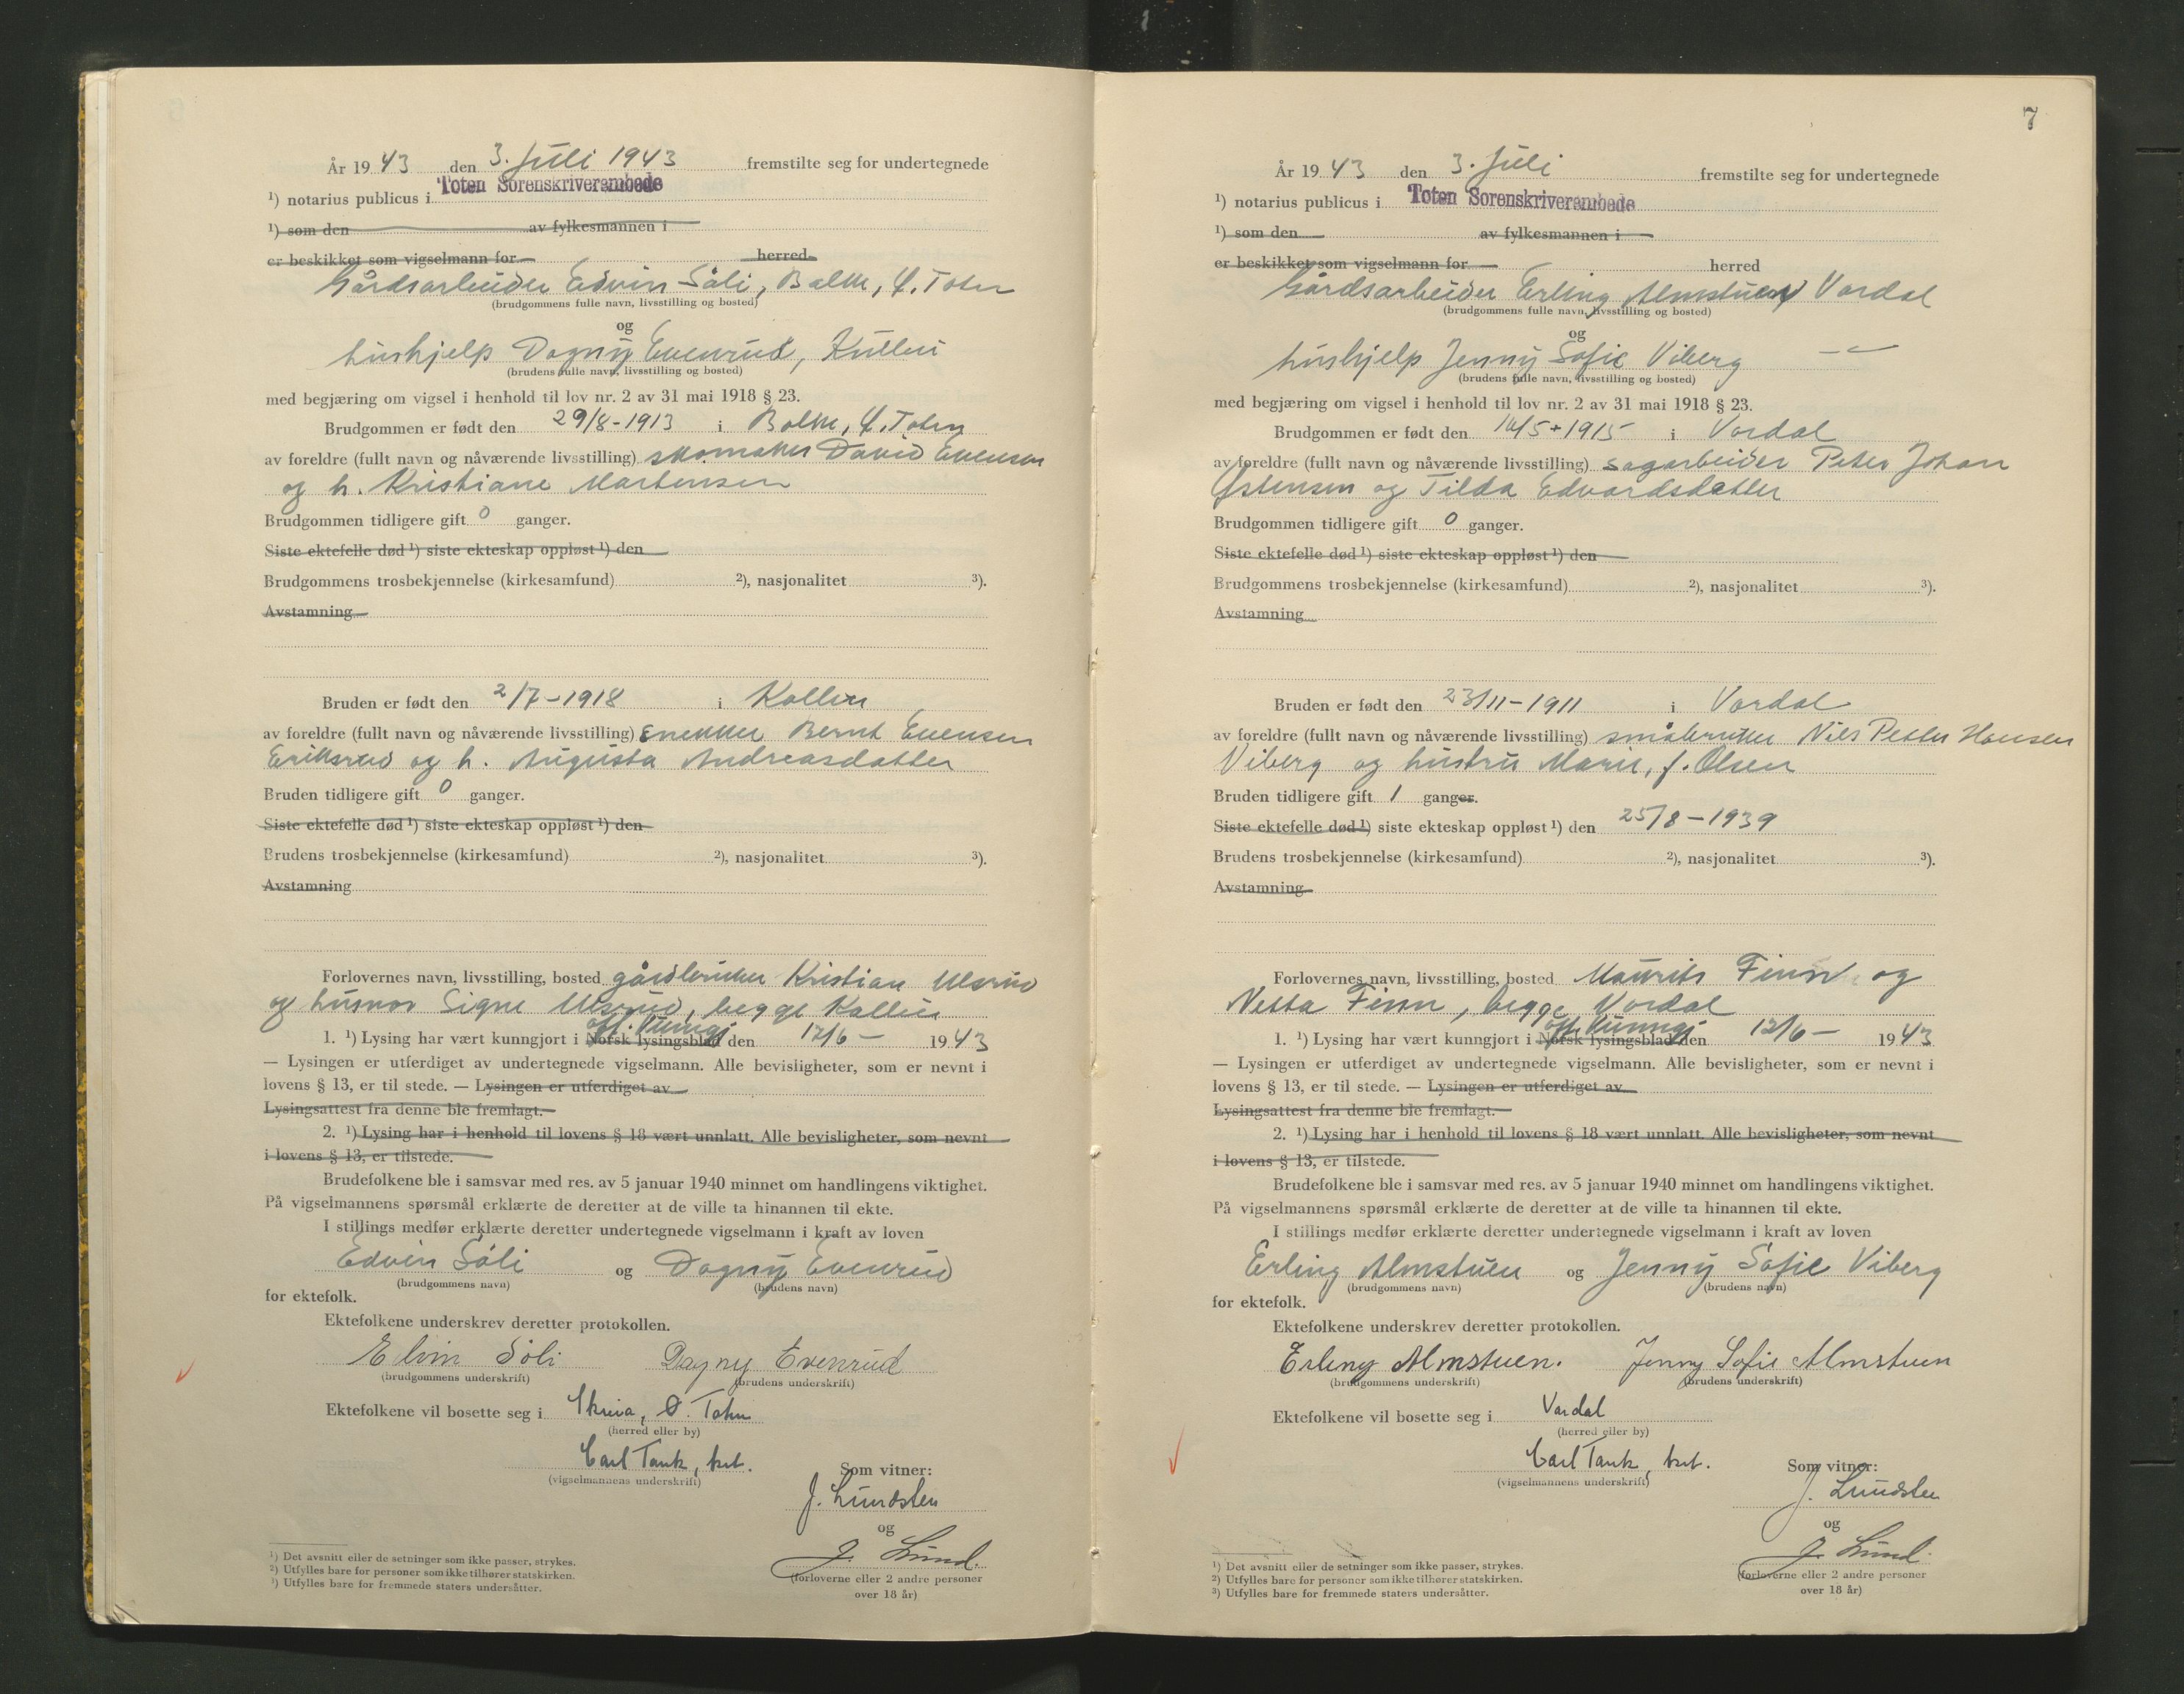 År 1943 den 3. Juli 1943 fremstilte seg for undertegnede
¹) notarius publicus i Toten Sorenskriverembede
¹) som den av fylkesmannen i
er beskikket som vigselmann for herred
Gårdsarbeider Edvin Søli, Balke, Ø. Toten
(brudgommens fulle navn, livsstilling og bosted)
og
hushjelp Dagny Evenrud, Kolbu
(brudens fulle navn, livsstilling og bosted)
med begjæring om vigsel i henhold til lov nr. 2 av 31 mai 1918 § 23.
Brudgommen er født den 29/8-1913 i Balke, Ø. Toten
av foreldre (fullt navn og nåværende livsstilling) skomaker David Evensen
og h. Kristiane Martensen
Brudgommen tidligere gift 0 ganger.
Siste ektefelle død ¹) siste ekteskap oppløst ¹) den
Brudgommens trosbekjennelse (kirkesamfund) ²), nasjonalitet ³).
Avstamning
Bruden er født den 2/7-1918 i Kolbu
av foreldre (fullt navn og nåværende livsstilling) snekker Bernt Evensen
Eriksrud og h. Augusta Andreasdatter
Bruden tidligere gift 0 ganger.
Siste ektefelle død ¹) siste ekteskap oppløst ¹) den
Brudens trosbekjennelse (kirkesamfund) ²), nasjonalitet ³).
Avstamning
Forlovernes navn, livsstilling, bosted gårdbruker Kristian Ulsrud
og husmor Signe Ulsrud, begge Kolbu
off. kunngj.
1. ¹) Lysing har vært kunngjort i Norsk lysingsblad den 12/6 - 1943
— Lysingen er utferdiget av undertegnede vigselmann. Alle bevisligheter, som er nevnt i
lovens § 13, er til stede. — Lysingen er utferdiget av
Lysingsattest fra denne ble fremlagt.
2. ¹) Lysing har i henhold til lovens § 18 vært unnlatt. Alle bevisligheter, som nevnt
i lovens § 13, er tilstede.
Brudefolkene ble i samsvar med res. av 5 januar 1940 minnet om handlingens viktighet.
På vigselmannens spørsmål erklærte de deretter at de ville ta hinannen til ekte.
I stillings medfør erklærte deretter undertegnede vigselmann i kraft av loven
Edvin Søli og Dagny Evenrud
(brudgommens navn) (brudens navn)
for ektefolk.
Ektefolkene underskrev deretter protokollen.
Edvin Søli Dagny Evenrud
(brudgommens underskrift) (brudens underskrift)
Ektefolkene vil bosette seg i Skreia, Ø. Toten
(herred eller by)
Carl Tank, kst.
(vigselmannens underskrift)
Som vitner:
J. Lundsten
og
J. Lund.
(forloverne eller 2 andre personer
over 18 år)
¹) Det avsnitt eller de setninger som ikke passer, strykes.
²) Utfylles bare for personer som ikke tilhører statskirken.
³) Utfylles bare for fremmede staters undersåtter.
7
År 1943 den 3. Juli fremstilte seg for undertegnede
¹) notarius publicus i Toten Sorenskriverembede
¹) som den av fylkesmannen i
er beskikket som vigselmann for herred
Gårdsarbeider Erling Almstuen, Vardal
(brudgommens fulle navn, livsstilling og bosted)
og
hushjelp Jenny Sofie Viberg
(brudens fulle navn, livsstilling og bosted)
med begjæring om vigsel i henhold til lov nr. 2 av 31 mai 1918 § 23.
Brudgommen er født den 14/5-1915 i Vardal
av foreldre (fullt navn og nåværende livsstilling) sagarbeider Peter Johan
Østensen og Tilda Edvardsdatter
Brudgommen tidligere gift 0 ganger.
Siste ektefelle død ¹) siste ekteskap oppløst ¹) den
Brudgommens trosbekjennelse (kirkesamfund) ²), nasjonalitet ³).
Avstamning
Bruden er født den 23/11-1911 i Vardal
av foreldre (fullt navn og nåværende livsstilling) småbruker Nils Petter Hansen
Viberg og hustru Marie, f. Olsen
Bruden tidligere gift 1 ganger.
Siste ektefelle død ¹) siste ekteskap oppløst ¹) den 25/8-1939
Brudens trosbekjennelse (kirkesamfund) ²), nasjonalitet ³).
Avstamning
Forlovernes navn, livsstilling, bosted Maurits Finn og
Netta Finn, begge Vardal
off. kunngj.
1. ¹) Lysing har vært kunngjort i Norsk lysingsblad den 12/6 - 1943
— Lysingen er utferdiget av undertegnede vigselmann. Alle bevisligheter, som er nevnt i
lovens § 13, er til stede. — Lysingen er utferdiget av
Lysingsattest fra denne ble fremlagt.
2. ¹) Lysing har i henhold til lovens § 18 vært unnlatt. Alle bevisligheter, som nevnt
i lovens § 13, er tilstede.
Brudefolkene ble i samsvar med res. av 5 januar 1940 minnet om handlingens viktighet.
På vigselmannens spørsmål erklærte de deretter at de ville ta hinannen til ekte.
I stillings medfør erklærte deretter undertegnede vigselmann i kraft av loven
Erling Almstuen og Jenny Sofie Viberg
(brudgommens navn) (brudens navn)
for ektefolk.
Ektefolkene underskrev deretter protokollen.
Erling Almstuen. Jenny Sofie Almstuen
(brudgommens underskrift) (brudens underskrift)
Ektefolkene vil bosette seg i Vardal
(herred eller by)
Carl Tank, kst.
(vigselmannens underskrift)
Som vitner:
J. Lundsten
og
J. Lund.
(forloverne eller 2 andre personer
over 18 år)
¹) Det avsnitt eller de setninger som ikke passer, strykes.
²) Utfylles bare for personer som ikke tilhører statskirken.
³) Utfylles bare for fremmede staters undersåtter.